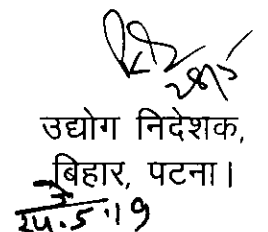 उद्योग निदेशक,
बिहार, पटना।
24.5.19